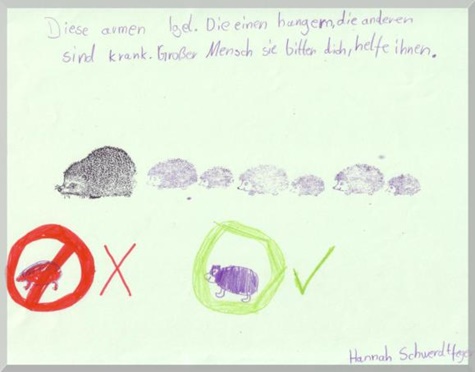 Diese armen Igel. Die einen hungern, die anderen
sind krank. Großer Mensch sie bitten dich, helfe ihnen.
X
Hannah Schwerdtfeger